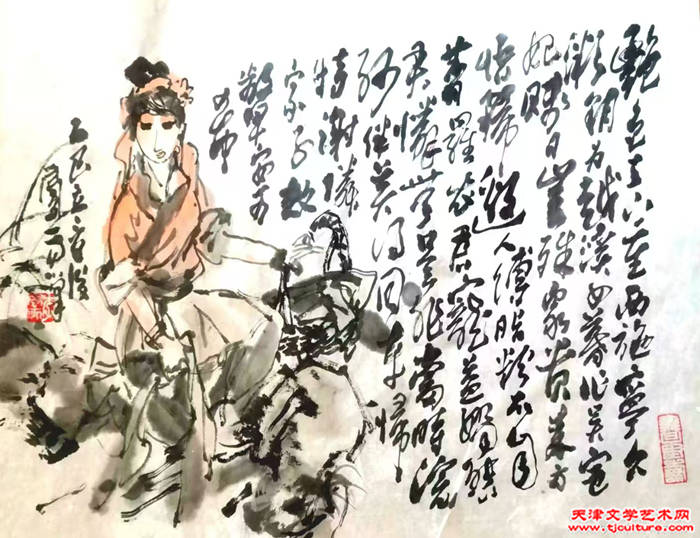 艷色天下重西施寧久
微朝为越溪女暮作吴宫
妃賤日豈殊众貴来方
悟稀邀人傅脂粉不自
著羅衣君寵益嬌態
君憐無是非當時浣
纱伴莫得同車歸
持謝隣
家子效
顰安可
希
天津文学艺术网
www.tjculture.com